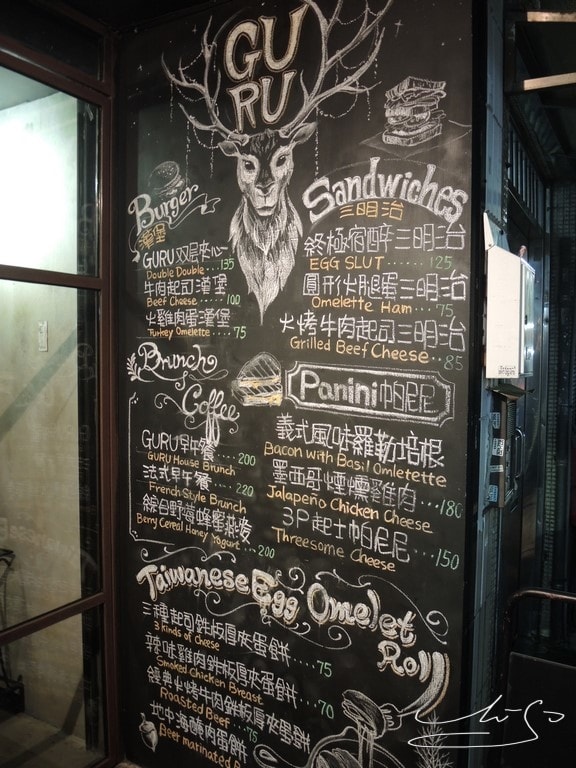 GU
RU
Burger
漢堡
GURU双层夾心
Double Double...135
牛肉起司漢堡
Beef Cheese.....100
火雞肉蛋漢堡
Turkey Omelette....75
Sandwiches
三明治
終極宿醉三明治
EGG SLUT......125
圓形火腿蛋三明治
Omelette Ham....75
火烤牛肉起司三明治
Grilled Beef Cheese...85
Brunch
&
Coffee
GURU早午餐
GURU House Brunch...200
法式早午餐
French Style Brunch...220
綜合野莓蜂蜜燕麥
Berry Cereal Honey Yogurt...200
Panini帕尼尼
義式風味羅勒培根
Bacon with Basil Omletette
墨西哥煙燻雞肉...180
Jalapeño Chicken Cheese
3P起士帕尼尼...150
Threesome Cheese
Taiwanese Egg Omelet Roll
三種起司鉄板厚夾蛋餅
3 kinds of Cheese.....75
辣味雞肉鉄板厚夾蛋餅
Smoked Chicken Breast....70
經典火烤牛肉鉄板厚夾蛋餅
Roasted Beef...75
蛋餅
Beer marinated